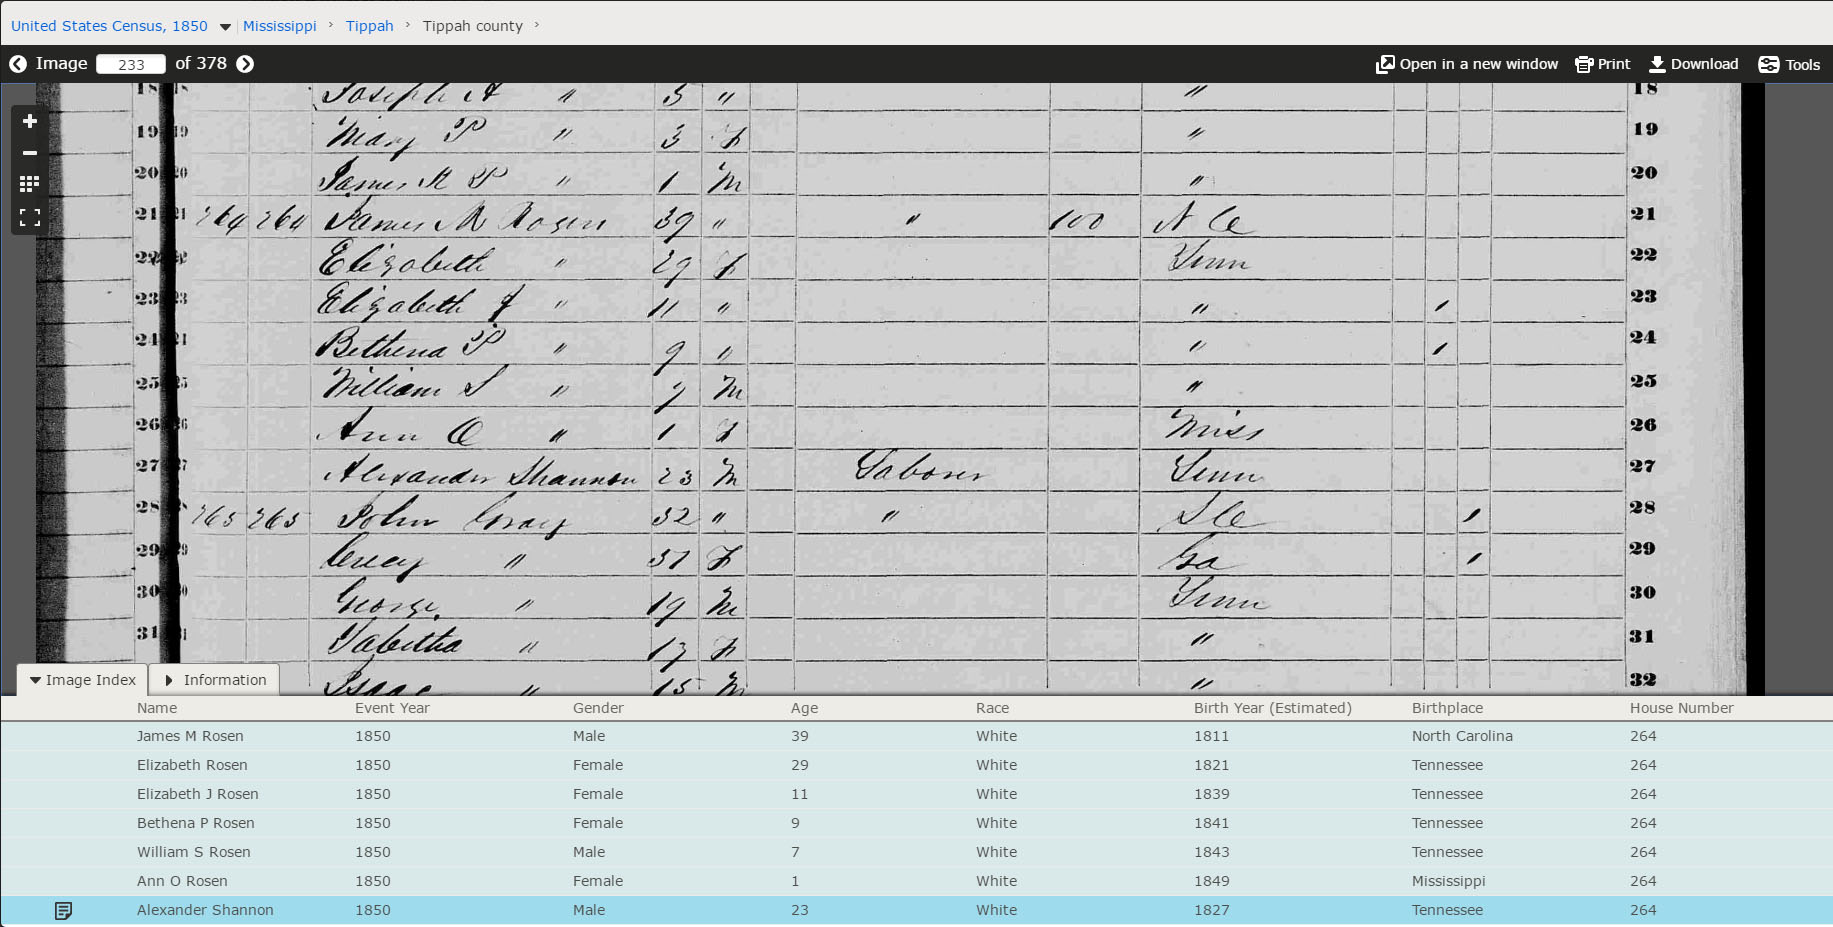 United States Census, 1850 Mississippi › Tippah › Tippah county ›
Image 233 of 378 Open in a new window Print Download Tools
18 18 Joseph A " 5 " " 18
19 19 Mary P " 3 F " 19
20 20 James R P " 1 M " 20
21 21 264 264 James M Rosen 39 " " 100 N C 21
22 22 Elizabeth " 29 F Tenn 22
23 23 Elizabeth J " 11 " " / 23
24 24 Bethena P " 9 " " / 24
25 25 William S " 7 M " 25
26 26 Ann O " 1 F Miss 26
27 27 Alexander Shannon 23 M Laborer Tenn 27
28 28 265 265 John Gray 32 " " S C / 28
29 29 " 37 F Ga / 29
30 30 George " 19 M Tenn 30
31 31 Tabitha " 17 F " 31
Isaac " 15 M " 32
Image Index Information
Name Event Year Gender Age Race Birth Year (Estimated) Birthplace House Number
James M Rosen 1850 Male 39 White 1811 North Carolina 264
Elizabeth Rosen 1850 Female 29 White 1821 Tennessee 264
Elizabeth J Rosen 1850 Female 11 White 1839 Tennessee 264
Bethena P Rosen 1850 Female 9 White 1841 Tennessee 264
William S Rosen 1850 Male 7 White 1843 Tennessee 264
Ann O Rosen 1850 Female 1 White 1849 Mississippi 264
Alexander Shannon 1850 Male 23 White 1827 Tennessee 264